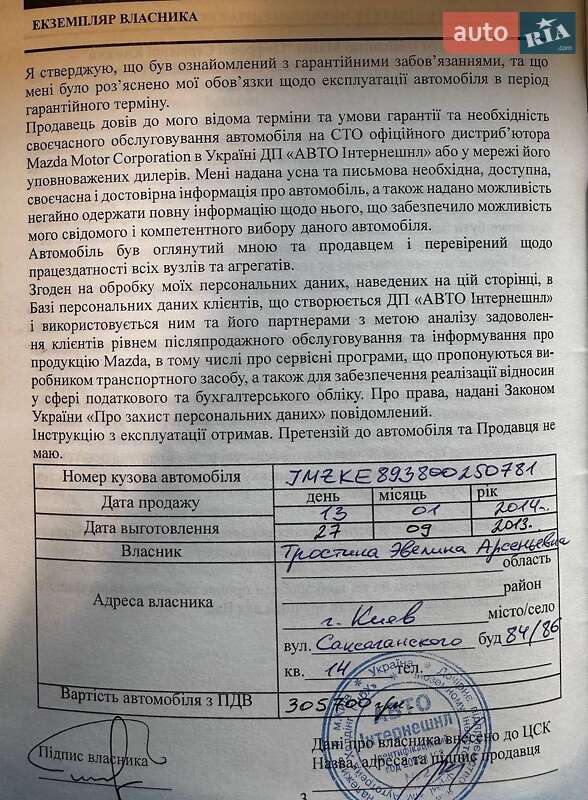 ЕКЗЕМПЛЯР ВЛАСНИКА
auto RIA .com
Я стверджую, що був ознайомлений з гарантійними забов'язаннями, та що
мені було роз'яснено мої обов'язки щодо експлуатації автомобіля в період
гарантійного терміну.
Продавець довів до мого відома терміни та умови гарантії та необхідність
своєчасного обслуговування автомобіля на СТО офіційного дистриб'ютора
Mazda Motor Corporation в Україні ДП «АВТО Інтернешнл» або у мережі його
уповноважених дилерів. Мені надана усна та письмова необхідна, доступна,
своєчасна і достовірна інформація про автомобіль, а також надано можливість
негайно одержати повну інформацію щодо нього, що забезпечило можливість
мого свідомого і компетентного вибору даного автомобіля.
Автомобіль був оглянутий мною та продавцем і перевірений щодо
працездатності всіх вузлів та агрегатів.
Згоден на обробку моїх персональних даних, наведених на цій сторінці, в
Базі персональних даних клієнтів, що створюється ДП «АВТО Інтернешнл»
і використовується ним та його партнерами з метою аналізу задоволен-
ня клієнтів рівнем післяпродажного обслуговування та інформування про
продукцію Mazda, в тому числі про сервісні програми, що пропонуються ви-
робником транспортного засобу, а також для забезпечення реалізації відносин
у сфері податкового та бухгалтерського обліку. Про права, надані Законом
України «Про захист персональних даних» повідомлений.
Інструкцію з експлуатації отримав. Претензій до автомобіля та Продавця не
маю.
Номер кузова автомобіля JMZKE893800250781
день місяць рік
Дата продажу 13 01 2014г.
Дата виготовлення 27 09 2013.
Власник Тростина Эвелина Арсеньевна
область
район
Адреса власника
г. Киев місто/село
вул. Саксаганского буд 84/86
кв. 14 тел.
Вартість автомобіля з ПДВ 305700 грн
Україна
АВТО
Інтернешнл
Підпис власника
Дані про власника внесено до ЦСК
Назва, адреса та підпис продавця
3